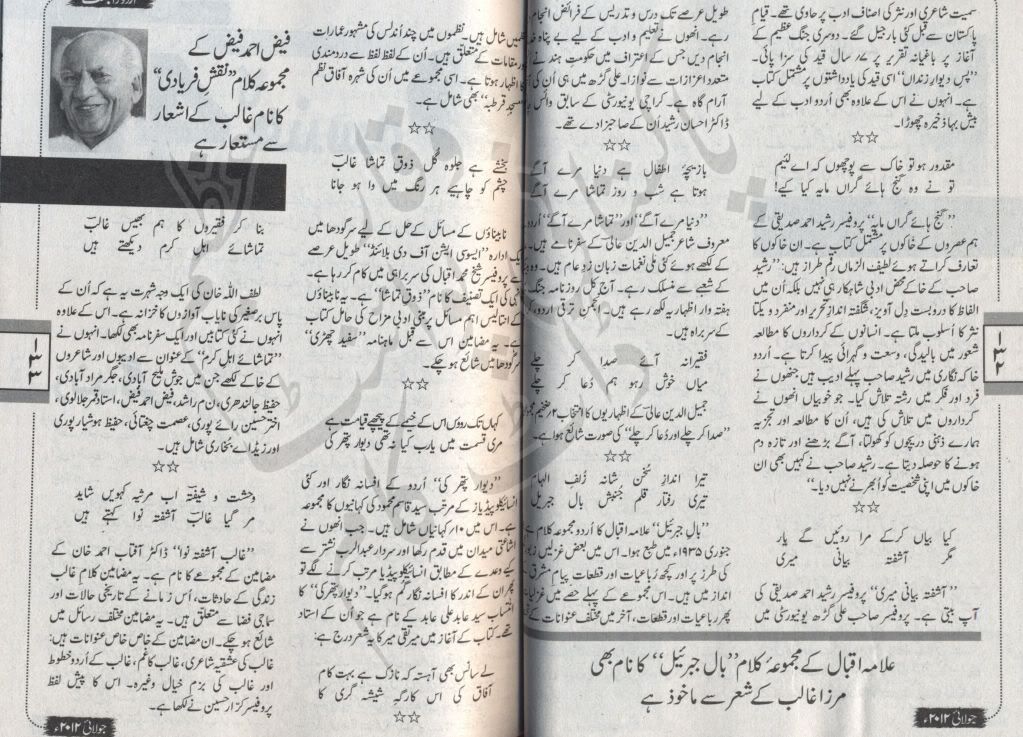 سمیت شاعری اور نثر کی اصناف ادب پر حاوی تھے۔ قیامِ
پاکستان سے قبل کئی بار جیل گئے۔ دوسری جنگ عظیم کے
آغاز پر باغیانہ تقریر پر ۷ سال قید کی سزا پائی۔
”پس دیوار زنداں“ اسی قید کی یادداشتوں پر مشتمل کتاب
ہے۔ انہوں نے اس کے علاوہ بھی اُردو ادب کے لیے
بیش بہا ذخیرہ چھوڑا۔
☆☆
مقدور ہو تو خاک سے پوچھوں کہ اے لئیم
تو نے وہ گنج ہائے گراں مایہ کیا کیے!
”گنج ہائے گراں مایہ“ پروفیسر رشید احمد صدیقی کے
ہم عصروں کے خاکوں پر مشتمل کتاب ہے۔ ان خاکوں کا
تعارف کراتے ہوئے لطیف الزماں رقم طراز ہیں: ”رشید
صاحب کے خاکے محض ادبی شاہکار ہی نہیں بلکہ اُن میں
الفاظ کا دروبست دل آویز، شگفتہ انداز تحریر اور منفرد و یکتا
نثر کا اسلوب ملتا ہے۔ انسانوں کے کرداروں کا مطالعہ
شعور میں بالیدگی، وسعت و گہرائی پیدا کرتا ہے۔ اُردو
خاکہ نگاری میں رشید صاحب پہلے ادیب ہیں جنھوں نے
فرد اور فکر میں رشتہ تلاش کیا۔ جو خوبیاں انھوں نے
کرداروں میں تلاش کی ہیں، اُن کا مطالعہ اور تجزیہ
ہمارے ذہنی دریچوں کو کھولتا، آگے بڑھنے اور تازہ دم
ہونے کا حوصلہ دیتا ہے۔ رشید صاحب نے کہیں بھی ان
خاکوں میں اپنی شخصیت کو اُبھرنے نہیں دیا۔“
☆☆
کیا بیاں کرکے مرا روئیں گے یار
مگر آشفتہ بیانی میری
”آشفتہ بیانی میری“ پروفیسر رشید احمد صدیقی کی
آپ بیتی ہے۔ پروفیسر صاحب علی گڑھ یونیورسٹی میں
طویل عرصے تک درس و تدریس کے فرائض انجام
رہے۔ انھوں نے تعلیم و ادب کے لیے بے پناہ
انجام دیں جس کے اعتراف میں حکومتِ ہند نے
متعدد اعزازات سے نوازا۔ علی گڑھ میں ہی اُن کی
آرام گاہ ہے۔ کراچی یونیورسٹی کے سابق وائس
ڈاکٹر احسان رشید اُن کے صاحبزادے تھے۔
☆☆
بازیچۂ اطفال ہے دنیا مرے آگے
ہوتا ہے شب و روز تماشا مرے آگے
”دنیا مرے آگے“ اور ”تماشا مرے آگے“ اُردو
معروف شاعر جمیل الدین عالی کے سفرنامے ہیں۔
کے لکھے ہوئے کئی ملی نغمات زبان زدِ عام ہیں۔ وہ
کے شعبے سے منسلک رہے۔ آج کل روزنامہ جنگ
وار اظہاریہ لکھ رہے ہیں۔ انجمن ترقی اردو،
کے سربراہ ہیں۔
فقیرانہ آئے صدا کر چلے
میاں خوش رہو ہم دُعا کر چلے
جمیل الدین عالی کے اظہاریوں کا انتخاب ۲ ضخیم
”صدا کر چلے اور دُعا کر چلے“ کی صورت شائع ہوا ہے۔
تیرا اندازِ سُخن شانۂ زُلفِ الہام
تیری رفتارِ قلم جُنبشِ بال جبریل
”بال جبریل“ علامہ اقبال کا اُردو مجموعہ کلام ہے
جنوری ۱۹۳۵ء میں طبع ہوا۔ اس میں بعض غزلیں
کی طرز پر اور کچھ رُباعیات اور قطعات پیامِ مشرق
انداز میں ہیں۔ اس مجموعے کے پہلے حصے میں غزلیات
پھر رباعیات اور قطعات، آخر میں مختلف عنوانات کے
علامہ اقبال کے مجموعۂ کلام ”بال جبرئیل“ کا نام بھی
مرزا غالب کے شعر سے ماخوذ ہے
جولائی ۲۰۱۲ء
۱۳۲
نظمیں شامل ہیں۔ نظموں میں چند اُندلس کی مشہور عمارات
اور مقامات کے متعلق ہیں۔ اُن کے لفظ لفظ سے دردمندی
کا اظہار ہوتا ہے۔ اسی مجموعے میں اُن کی شہرۂ آفاق نظم
”مسجدِ قرطبہ“ بھی شامل ہے۔
☆☆
بخشے ہے جلوہ گُل ذوقِ تماشا غالبؔ
چشم کو چاہیے ہر رنگ میں وا ہو جانا
نابیناؤں کے مسائل کے حل کے لیے سرگودھا میں
ایک ادارہ ”ایسوسی ایشن آف دی بلائنڈ“ طویل عرصے
سے پروفیسر شیخ محمد اقبال کی سربراہی میں کام کر رہا ہے۔
کی ایک تصنیف کا نام ”ذوقِ تماشا“ ہے۔ یہ نابیناؤں
کے انتالیس اہم مسائل پر مبنی ادبی مزاح کی حامل کتاب
ہے۔ یہ مضامین اس سے قبل ماہنامہ ”سفید چھڑی“
سرگودھا میں شائع ہو چکے۔
☆☆
کہاں تک روؤں اس کے خیمے کے پیچھے قیامت ہے
مری قسمت میں یارب کیا نہ تھی دیوار پتھر کی
”دیوار پتھر کی“ اُردو کے افسانہ نگار اور کئی
انسائیکلوپیڈیاز کے مرتب سید قاسم محمود کی کہانیوں کا مجموعہ
ہے۔ اس میں ۱۰ کہانیاں شامل ہیں۔ جب انھوں نے
اشاعتی میدان میں قدم رکھا اور سردار عبدالرب نشتر سے
کیے وعدے کے مطابق انسائیکلوپیڈیا مرتب کرنے لگے تو
پھر اُن کے اندر کا افسانہ نگار گم ہو گیا۔ ”دیوار پتھر کی“ کا
انتساب سید عابد علی عابد کے نام ہے جو اُن کے استاد
تھے۔ کتاب کے آغاز میں میر تقی میر کا یہ شعر درج ہے:
لے سانس بھی آہستہ کہ نازک ہے بہت کام
آفاق کی اس کارگہِ شیشہ گری کا
☆☆
فیض احمد فیض کے
مجموعہ کلام ”نقشِ فریادی“
کا نام غالب کے اشعار
سے مستعار ہے
بنا کر فقیروں کا ہم بھیس غالبؔ
تماشائے اہلِ کرم دیکھتے ہیں
لطف اللہ خان کی ایک وجہ شہرت یہ ہے کہ اُن کے
پاس برصغیر کی نایاب آوازوں کا خزانہ ہے۔ اس کے علاوہ
انہوں نے کئی کتابیں اور ایک سفرنامہ بھی لکھا۔ انہوں نے
”تماشائے اہلِ کرم“ کے عنوان سے ادیبوں اور شاعروں
کے خاکے لکھے جن میں جوش ملیح آبادی، جگر مراد آبادی،
حفیظ جالندھری، ن م راشد، فیض احمد فیض، استاد قمر جلالوی،
اختر حسین رائے پوری، عصمت چغتائی، حفیظ ہوشیار پوری
اور زیڈ اے بخاری شامل ہیں۔
☆☆
وحشت و شیفتہؔ اب مرثیہ کہویں شاید
مر گیا غالبؔ آشفتہ نوا کہتے ہیں
”غالب آشفتہ نوا“ ڈاکٹر آفتاب احمد خان کے
مضامین کے مجموعے کا نام ہے۔ یہ مضامین کلام غالب
زندگی کے حادثات، اُس زمانے کے تاریخی حالات اور
سماجی فضا سے متعلق ہیں۔ یہ مضامین مختلف رسائل میں
شائع ہو چکے۔ ان مضامین کے خاص خاص عنوانات ہیں:
غالب کی عشقیہ شاعری، غالب کا غم، غالب کے اُردو خطوط
اور غالب کی بزم خیال وغیرہ۔ اس کا پیش لفظ
پروفیسر کرّار حسین نے لکھا ہے۔
جولائی ۲۰۱۲ء
۱۳۳